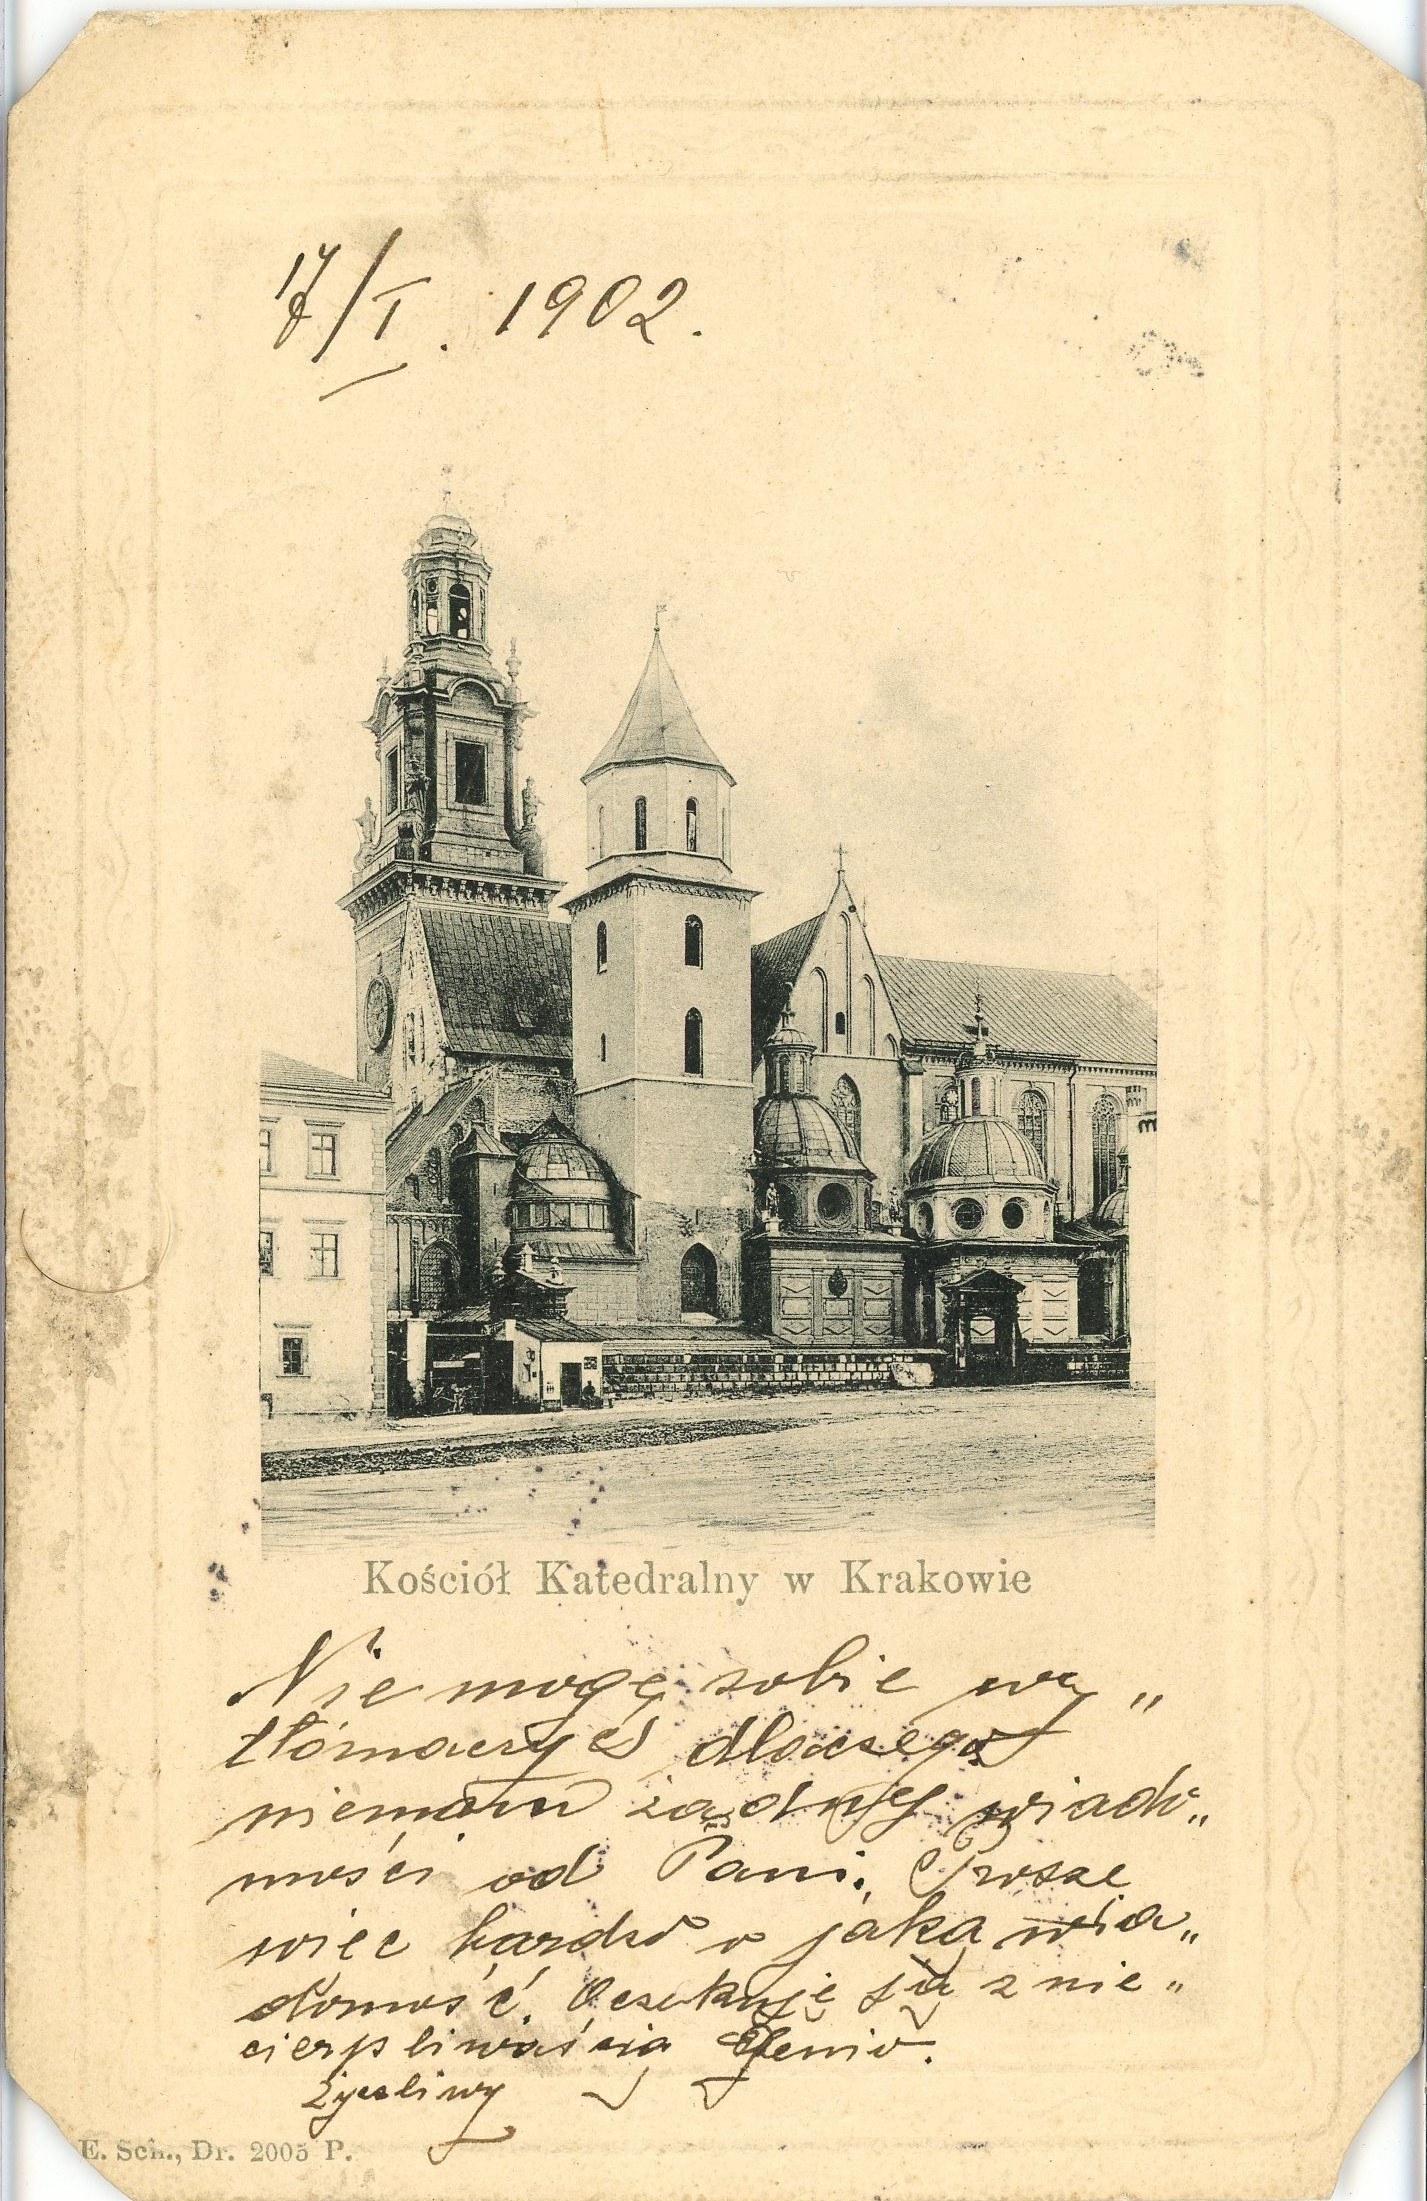 17/I. 1902.
Kościół Katedralny w Krakowie
Nie mogę sobie wy„
tłómaczyć dlaczego
niemam żadnej wiado„
mości od Pani. Proszę
więc bardzo o jaką wia„
domość. Oczekuję ją z nie„
cierpliwością Genio.
życzliwy
E. Sch., Dr. 2005 P.